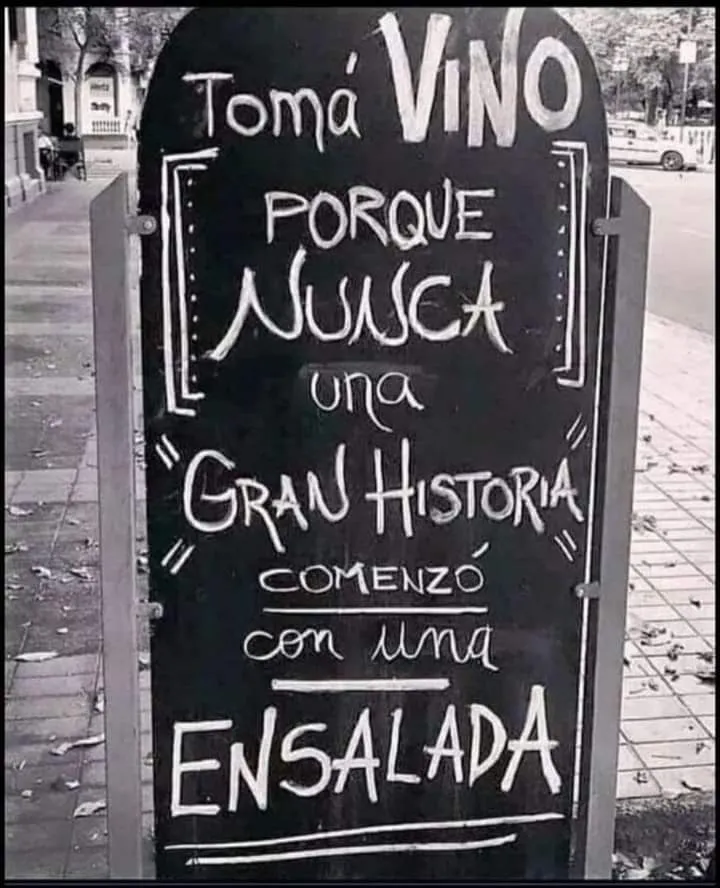 Tomá VINO
PORQUE
NUNCA
una
"GRAN HISTORIA"
COMENZÓ
con una
ENSALADA